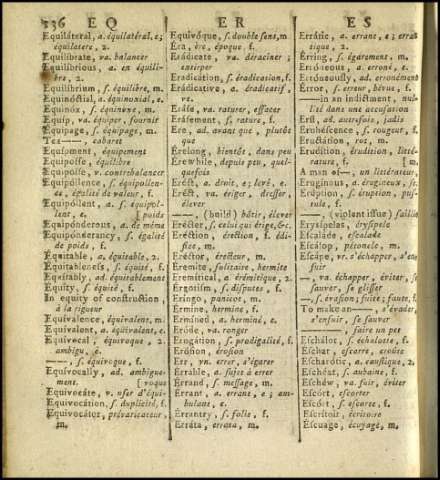 336 EQ
Equiláteral, a. équilatéral, e;
équilatere, 2.
Equílibrate, va. balancer
Equilíbrious, a. en équili-
bre, 2.
Equilíbrium, s. équilibre, m.
Equinóctial, a. équinoxial, e.
Equinóx, s. équinoxe, m.
Equíp, va. équiper, fournir
Equipage, s. équipage, m.
cabaret
Equípment, équipement
Equipoíse, équilibre
Equipoíse, v. contrebalancer
Equipóllence, s. équipollen-
ce, égalité de valeur, f.
Equipóllent, a. s. équipol-
lent, e. [poids
Equipónderous, a. de même
Equipónderancy, s. égalité
de poids, f.
Equitable, a. équitable, 2.
Equitableness, s. équité, f.
Equitably, ad. équitablement
Equity, s. équité, f.
In equity of construction,
à la rigueur
Equívalence, équivalent, m.
Equívalent, a. équivalent, e.
Equívocal, équivoque, 2.
ambigu, e.
——, s. équivoque, f.
Equívocally, ad. ambigue-
ment. [voque
Equívocáte, v. user d'équi-
Equivocátion, s. duplicité, f.
Equivocátor, prévaricateur,
m.
ER
Equivôque, s. double sens, m.
Era, ère, époque, f.
Erádicate, va. déraciner;
extirper
Eradicátion, s. éradication, f.
Erádicative, a. éradicatif,
ve.
Eráse, va. raturer, effacer
Erásement, s. rature, f.
Ere, ad. avant que, plutôt
que
Erelong, bientôt, dans peu
Erewhíle, depuis peu, quel-
quefois
Eréct, a. droit, e; levé, e.
Eréct, va. ériger, dresser,
élever
——, (build) bâtir, élever
Erécter, s. celui qui érige, &c.
Eréction, érection, f. édi-
fice, m.
Eréctor, érecteur, m.
Eremite, solitaire, hermite
Eremítical, a. érémitique, 2.
Ergotism, s. disputes, f.
Eringo, panicot, m.
Ermine, hermine, f.
Ermined, a. herminé, e.
Eróde, va. ronger
Erogátion, s. prodigalité, f.
Erósion, érosion
Err, vn. errer, s'égarer
Errable, a. sujet à errer
Errand, s. message, m.
Errant, a. errant, e; am-
bulant, e.
Errantry, s. folie, f.
Erráta, errata, m.
ES
Errátic, a. errant, e; erra
tique, 2.
Erring, s. égarement, m.
Erróneous, a. erroné, e.
Erróneously, ad. erronément
Error, s. erreur, bévue, f.
—— in an indictment, nul-
lité dans une accusation
Erst, ad. autrefois, jadis
Erubéscence, s. rougeur, f.
Eructátion, rot, m.
Erudítion, érudition, litté-
rature, f. [m.
A man of——, un littérateur,
Erúginous, a. érugineux, se.
Erúption, s. éruption, pus-
tule, f.
——, (violent issue) saillie
Erysípelas, érysipele
Escaláde, escalade
Escálop, pétoncle, m.
Escápe, vr. s'échapper, s'en-
fuir
——, va. échapper, éviter, se
sauver, se glisser
——, s. évasion; fuite; faute, f.
To make an——, s'évader,
s'enfuir, se sauver
——, faire un pet
Eschálot, s. échalotte, f.
Eschar, escarre, croûte
Escharótic, a. caustique, 2.
Eschéat, s. aubaine, f.
Eschéw, va. fuir, éviter
Escórt, escorter
Escórt, s. escorte, f.
Escritoír, écritoire
Escuage, écuage, m.